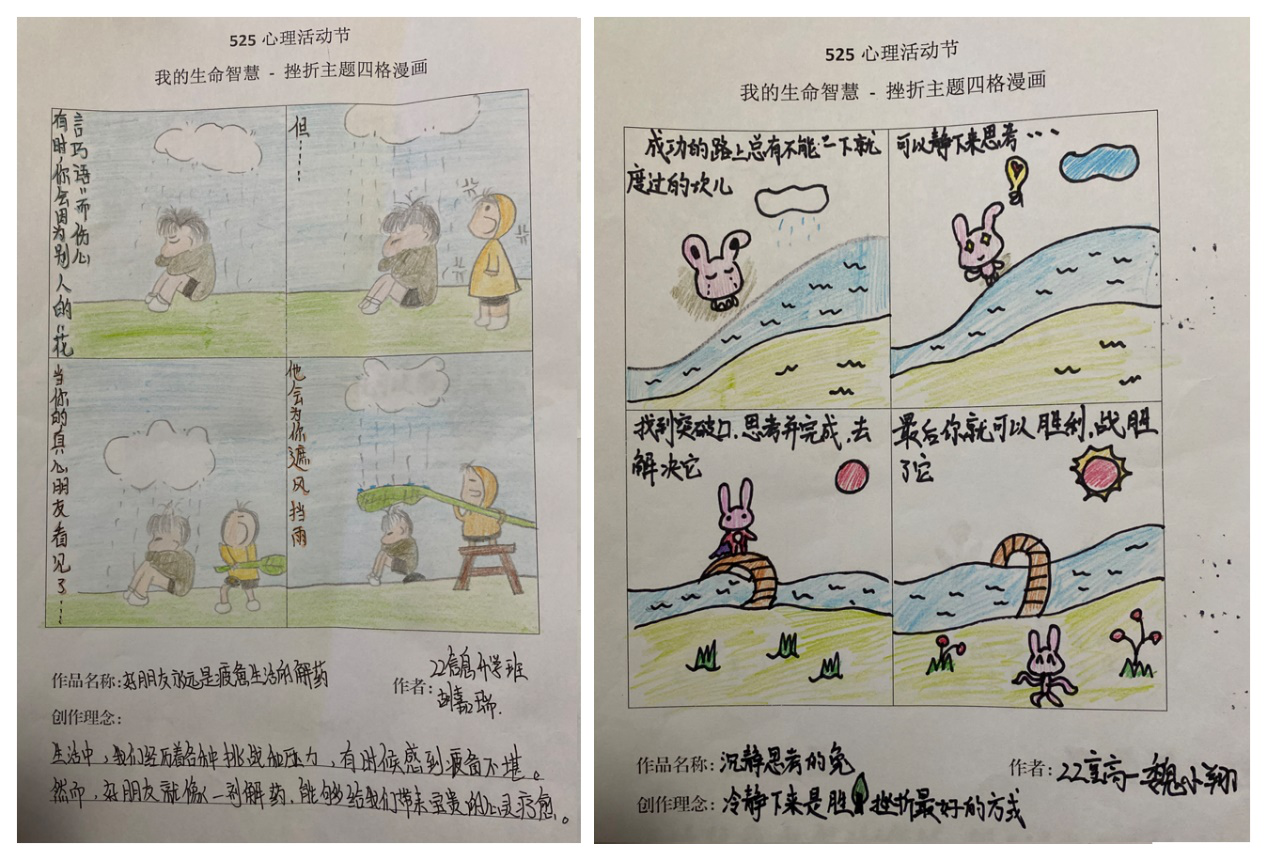 525 心理活动节
我的生命智慧 - 挫折主题四格漫画
有时,你会因为别人的“花
言巧语”而伤心
但……
当你的真心朋友看见了……
他会为你遮风挡雨
作品名称:好朋友永远是疲惫生活的解药
作者:
22信息开学班
胡嘉瑞
创作理念:
生活中,我们经历着各种挑战和压力,有时候感到疲备不堪。
然而,好朋友就像一剂解药,能够给我们带来宝贵的心灵疗愈。
525 心理活动节
我的生命智慧 - 挫折主题四格漫画
成功的路上总有不能一下就
度过的坎儿
可以静下来思考…
找到突破口,思考并完成,去
解决它
最后你就可以胜利,战胜
了它
作品名称:沉静思考的兔
作者:22宝高一魏小翔
创作理念:冷静下来是胜 挫折最好的方式